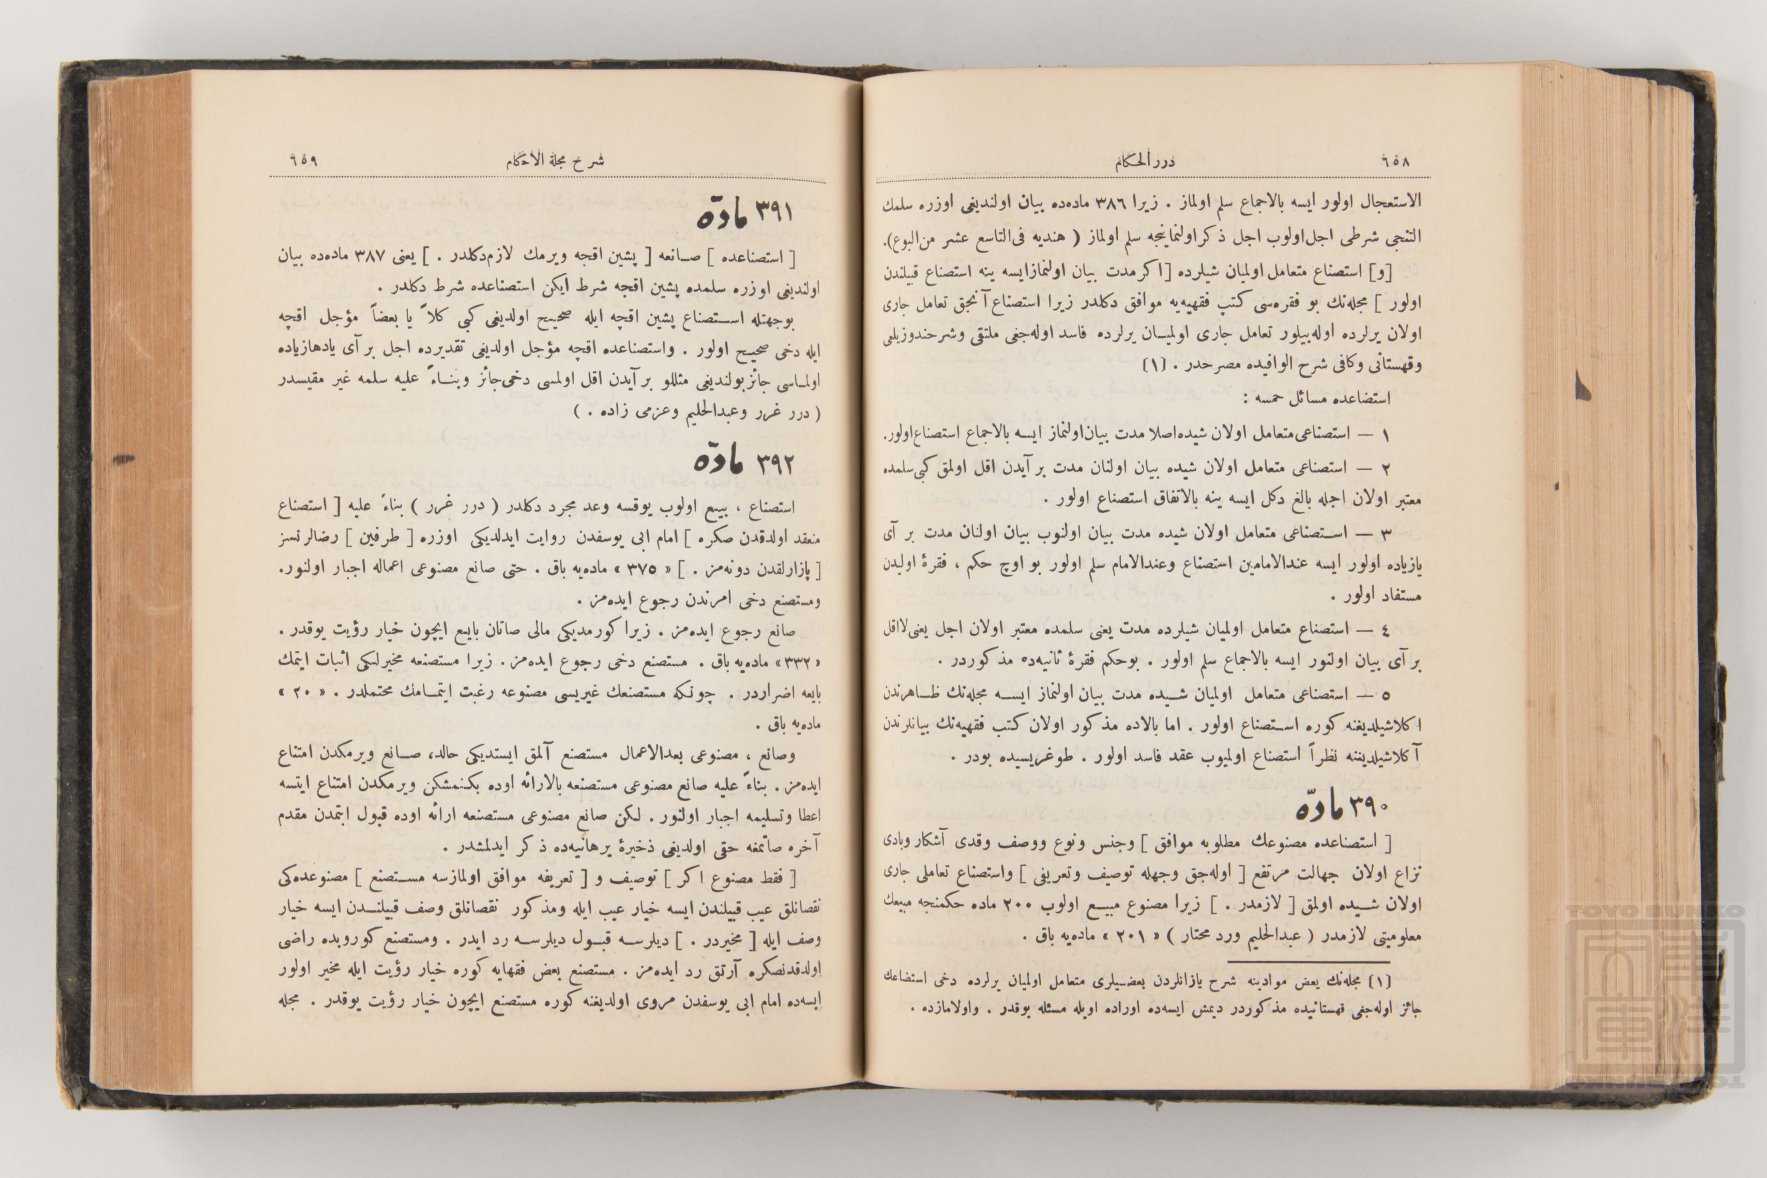 ٦٥٨
درر الحكام
الاستعجال اولور ايسه بالاجماع سلم اولماز . زيرا ٣٨٦ ماده‌ده بيان اولنديغى اوزره سلمك
التنجى شرطى اجل اولوب اجل ذكر اولنماينجه سلم اولماز ( هنديه فى التاسع عشر من البيوع).
[و] استصناع متعامل اولميان شيلرده [ اكر مدت بيان اولنماز ايسه ينه استصناع قبيلندن
اولور ] مجله‌نك بو فقره‌سى كتب فقهيه‌يه موافق دكلدر زيرا استصناع آنجق تعامل جارى
اولان يرلرده اوله‌بيلور تعامل جارى اولميان يرلرده فاسد اوله‌جغى ملتقى وشرحندوزيلعى
وقهستانى وكافى شرح الوافيده مصرحدر . (١)
استصناعده مسائل خمسه :
١ — استصناعى متعامل اولان شيده اصلا مدت بيان اولنماز ايسه بالاجماع استصناع اولور.
٢ — استصناعى متعامل اولان شيده بيان اولنان مدت بر آيدن اقل اولمق كبى سلمده
معتبر اولان اجله بالغ دكل ايسه ينه بالاتفاق استصناع اولور .
٣ — استصناعى متعامل اولان شيده مدت بيان اولنوب بيان اولنان مدت بر آى
يازياده اولور ايسه عندالامامين استصناع وعندالامام سلم اولور بو اوچ حكم ، فقرۀ اوليدن
مستفاد اولور .
٤ — استصناع متعامل اولميان شيلرده مدت يعنى سلمده معتبر اولان اجل يعنى لااقل
بر آى بيان اولنور ايسه بالاجماع سلم اولور . بو حكم فقرۀ ثانيه‌ده مذكوردر .
٥ — استصناعى متعامل اولميان شيده مدت بيان اولنماز ايسه مجله‌نك ظاهرندن
اكلاشيلديغنه كوره استصناع اولور . اما بالاده مذكور اولان كتب فقهيه‌نك بيانلرندن
آكلاشيلديغنه نظراً استصناع اولميوب عقد فاسد اولور . طوغريسيده بودر .
٣٩٠ مادّه
[ استصناعده مصنوعك مطلوبه موافق ] وجنس ونوع ووصف وقدى آشكار وبادى
نزاع اولان جهالت مرتفع [ اوله‌جق وجهله توصيف وتعريفى ] واستصناع تعاملى جارى
اولان شيده اولمق [ لازمدر . ] زيرا مصنوع مبيع اولوب ٢٠٠ ماده حكمنجه مبيعك
معلوميتى لازمدر ( عبدالحليم ورد محتار ) « ٢٠١ » ماده‌يه باق .
(١) مجله‌نك بعض موادينه شرح يازانلردن بعضيلرى متعامل اولميان يرلرده دخى استصناعك
جائز اوله‌جغى قهستانيده مذكوردر ديمش ايسه‌ده اوراده اويله مسئله يوقدر . واولامازده .
شرح مجلة الاحكام
٦٥٩
٣٩١ مادّه
[ استصناعده ] صانعه [ پشين اقچه ويرمك لازم دكلدر . ] يعنى ٣٨٧ ماده‌ده بيان
اولنديغى اوزره سلمده پشين اقچه شرط ايكن استصناعده شرط دكلدر .
بوجهتله استصناع پشين اقچه ايله صحيح اولديغى كبى كلاً يا بعضاً مؤجل اقچه
ايله دخى صحيح اولور . واستصناعده اقچه مؤجل اولديغى تقديرده اجل بر آى يادها زياده
اولماسى جائز بولنديغى مثللو بر آيدن اقل اولمسى دخى جائز وبناءً عليه سلمه غير مقيسدر
( درر غرر وعبدالحليم وعزمى زاده . )
٣٩٢ مادّه
استصناع ، بيع اولوب يوقسه وعد مجرد دكلدر ( درر غرر ) بناءً عليه [ استصناع
منعقد اولدقدن صكره ] امام ابى يوسفدن روايت ايدلديكى اوزره [ طرفين ] رضالر نسز
[ پازارلقدن دونه‌مز . ] « ٣٧٥ » ماده‌يه باق . حتى صانع مصنوعى اعماله اجبار اولنور.
ومستصنع دخى امرندن رجوع ايده‌مز .
صانع رجوع ايده‌مز . زيرا كورمديكى مالى صاتان بايع ايچون خيار رؤيت يوقدر .
«٣٣٢» ماده‌يه باق . مستصنع دخى رجوع ايده‌مز. زيرا مستصنعه مخيرلكى اثبات ايتمك
بايعه اضراردر . چونكه مستصنعك غيريسى مصنوعه رغبت ايتمامك محتملدر . « ٢٠ »
ماده‌يه باق .
وصانع ، مصنوعى بعدالاعمال مستصنع آلمق ايستديكى حالد، صانع ويرمكدن امتناع
ايده‌مز . بناءً عليه صانع مصنوعى مستصنعه بالارائه اوده بكنمشكن ويرمكدن امتناع ايتسه
اعطا وتسليمه اجبار اولنور . لكن صانع مصنوعى مستصنعه ارائه اوده قبول ايتمدن مقدم
آخره صاتمغه حقى اولديغى ذخيرۀ برهانيه‌ده ذكر ايدلمشدر .
[ فقط مصنوع اكر ] توصيف و [ تعريفه موافق اولمازسه مستصنع ] مصنوعده‌كى
نقصانلق عيب قبيلندن ايسه خيار عيب ايله ومذكور نقصانلق وصف قبيلندن ايسه خيار
وصف ايله [ مخيردر . ] ديلرسه قبول ديلرسه رد ايدر . ومستصنع كوروبده راضى
اولدقدنصكره آرتق رد ايده‌مز . مستصنع بعض فقهايه كوره خيار رؤيت ايله مخير اولور
ايسه‌ده امام ابى يوسفدن مروى اولديغنه كوره مستصنع ايچون خيار رؤيت يوقدر . مجله
TOYO BUNKO